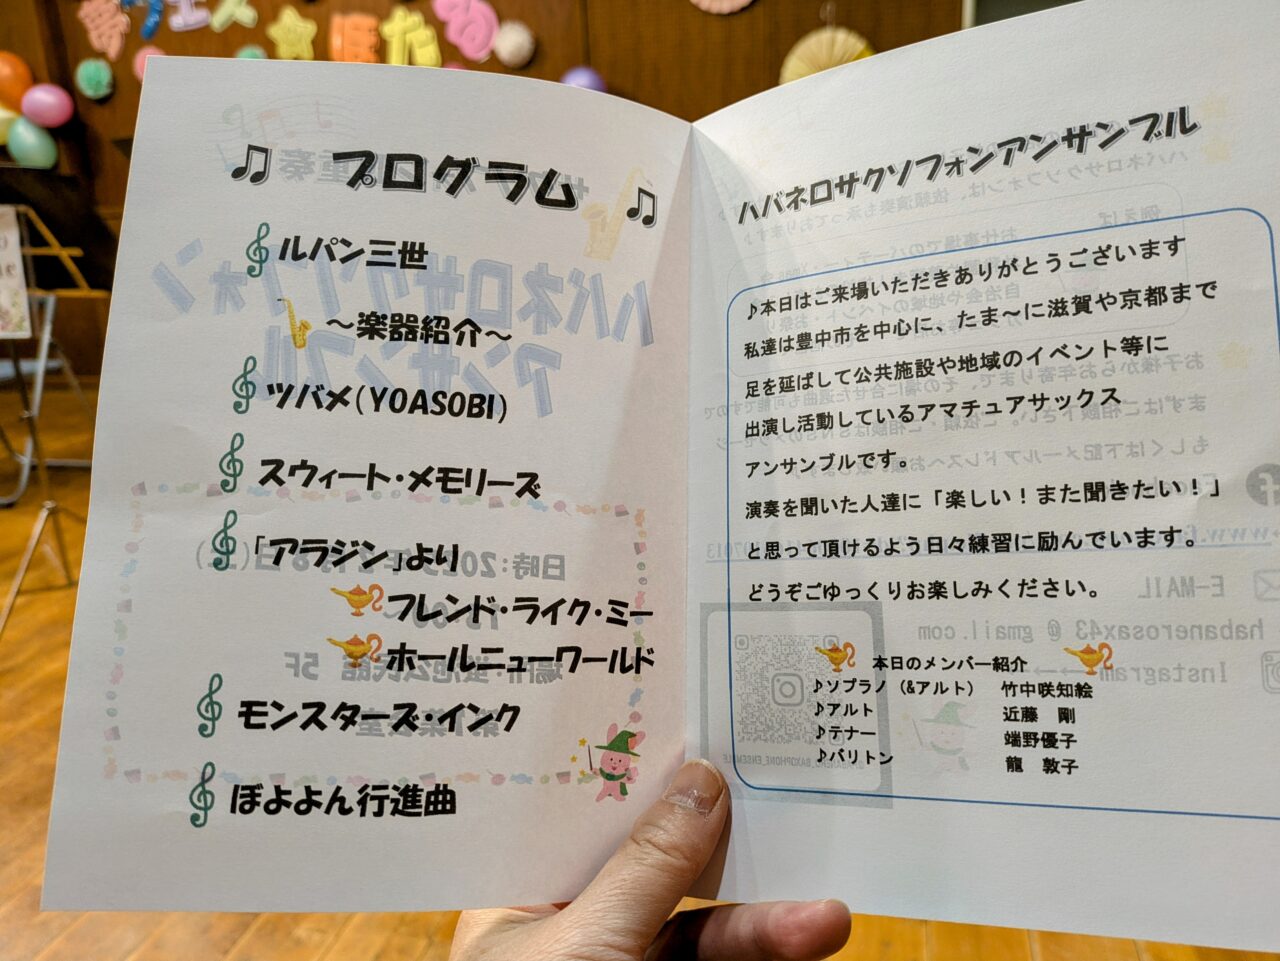 ♫ プログラム ♫
ルパン三世
～楽器紹介～
ツバメ(YOASOBI)
スウィート・メモリーズ
「アラジン」より
フレンド・ライク・ミー
ホールニューワールド
モンスターズ・インク
ぼよよん行進曲
ハバネロサクソフォンアンサンブル
♪本日はご来場いただきありがとうございます
私達は豊中市を中心に、たま～に滋賀や京都まで
足を延ばして公共施設や地域のイベント等に
出演し活動しているアマチュアサックス
アンサンブルです。
演奏を聞いた人達に「楽しい！また聞きたい！」
と思って頂けるよう日々練習に励んでいます。
どうぞごゆっくりお楽しみください。
本日のメンバー紹介
♪ソプラノ（&アルト） 竹中咲知絵
♪アルト 近藤 剛
♪テナー 端野優子
♪バリトン 龍 敦子